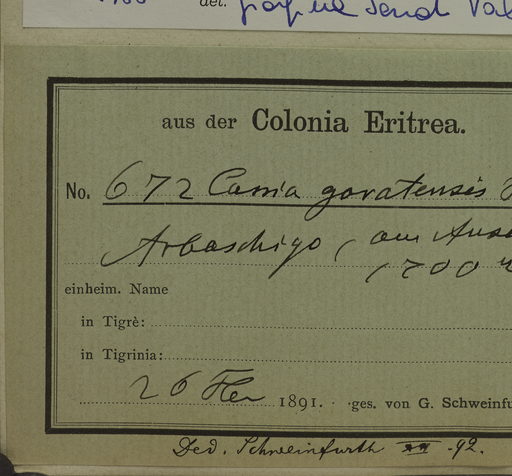 det.
aus der Colonia Eritrea.
No. 672 Cassia goratensis
Arbaschigo, am
einheim. Name
in Tigrè:
in Tigrinia:
26 Febr 1891. ges. von G. Schweinfu
Ded. Schweinfurth -92.